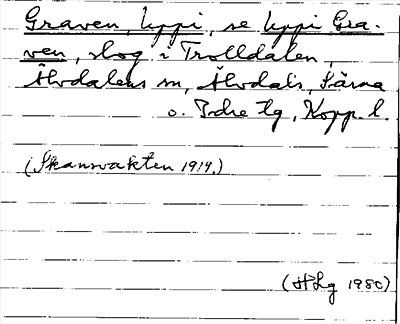 Graven, Uppi, se Uppi Gra-
ven, skog i Trolldalen,
Älvdalens sn, Älvdals, Särna
o. Idre tg, Kopp. l.
(Skansvakten 1919.)
(HLg 1980)